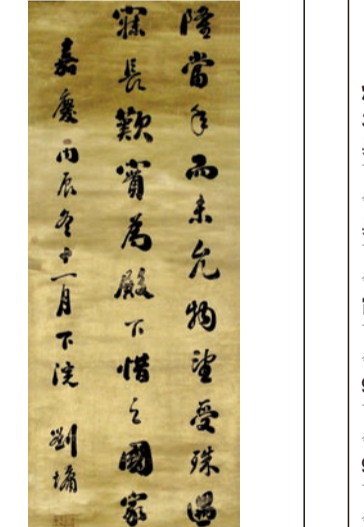 隆當年而未允物望受殊遇
寐長歎實為殿下惜之國家
嘉慶丙辰冬十一月下浣 劉墉